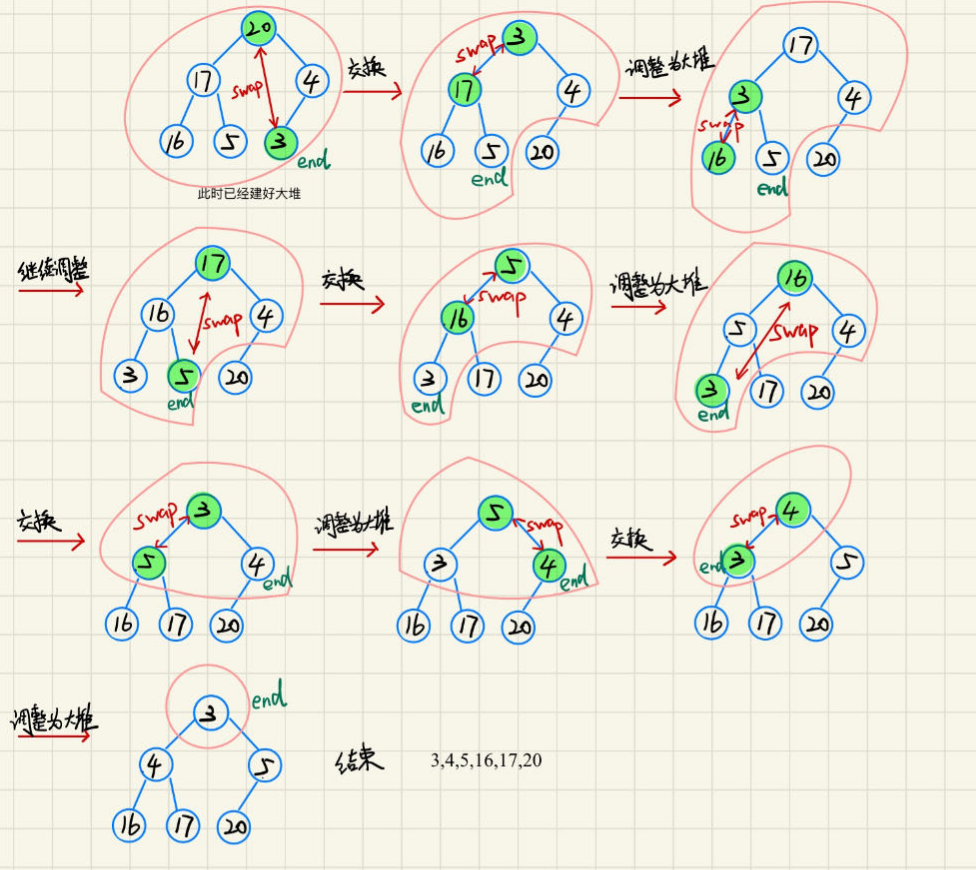 20
17 4
swap
16 5 3
end
此时已经建好大堆
交换
3
swap
17 4
16 5 20
end
调整为大堆
17
3 4
swap
16 5 20
end
继续调整
17
16 4
swap
3 5 20
end
交换
5
swap
16 4
3 17 20
end
调整为大堆
16
5 4
swap
3 17 20
end
交换
3
swap
5 4
end
16 17 20
调整为大堆
5
swap
3 4
end
16 17 20
交换
4
swap
end 3 5
16 17 20
调整为大堆
3 end
4 5
16 17 20
结束 3,4,5,16,17,20